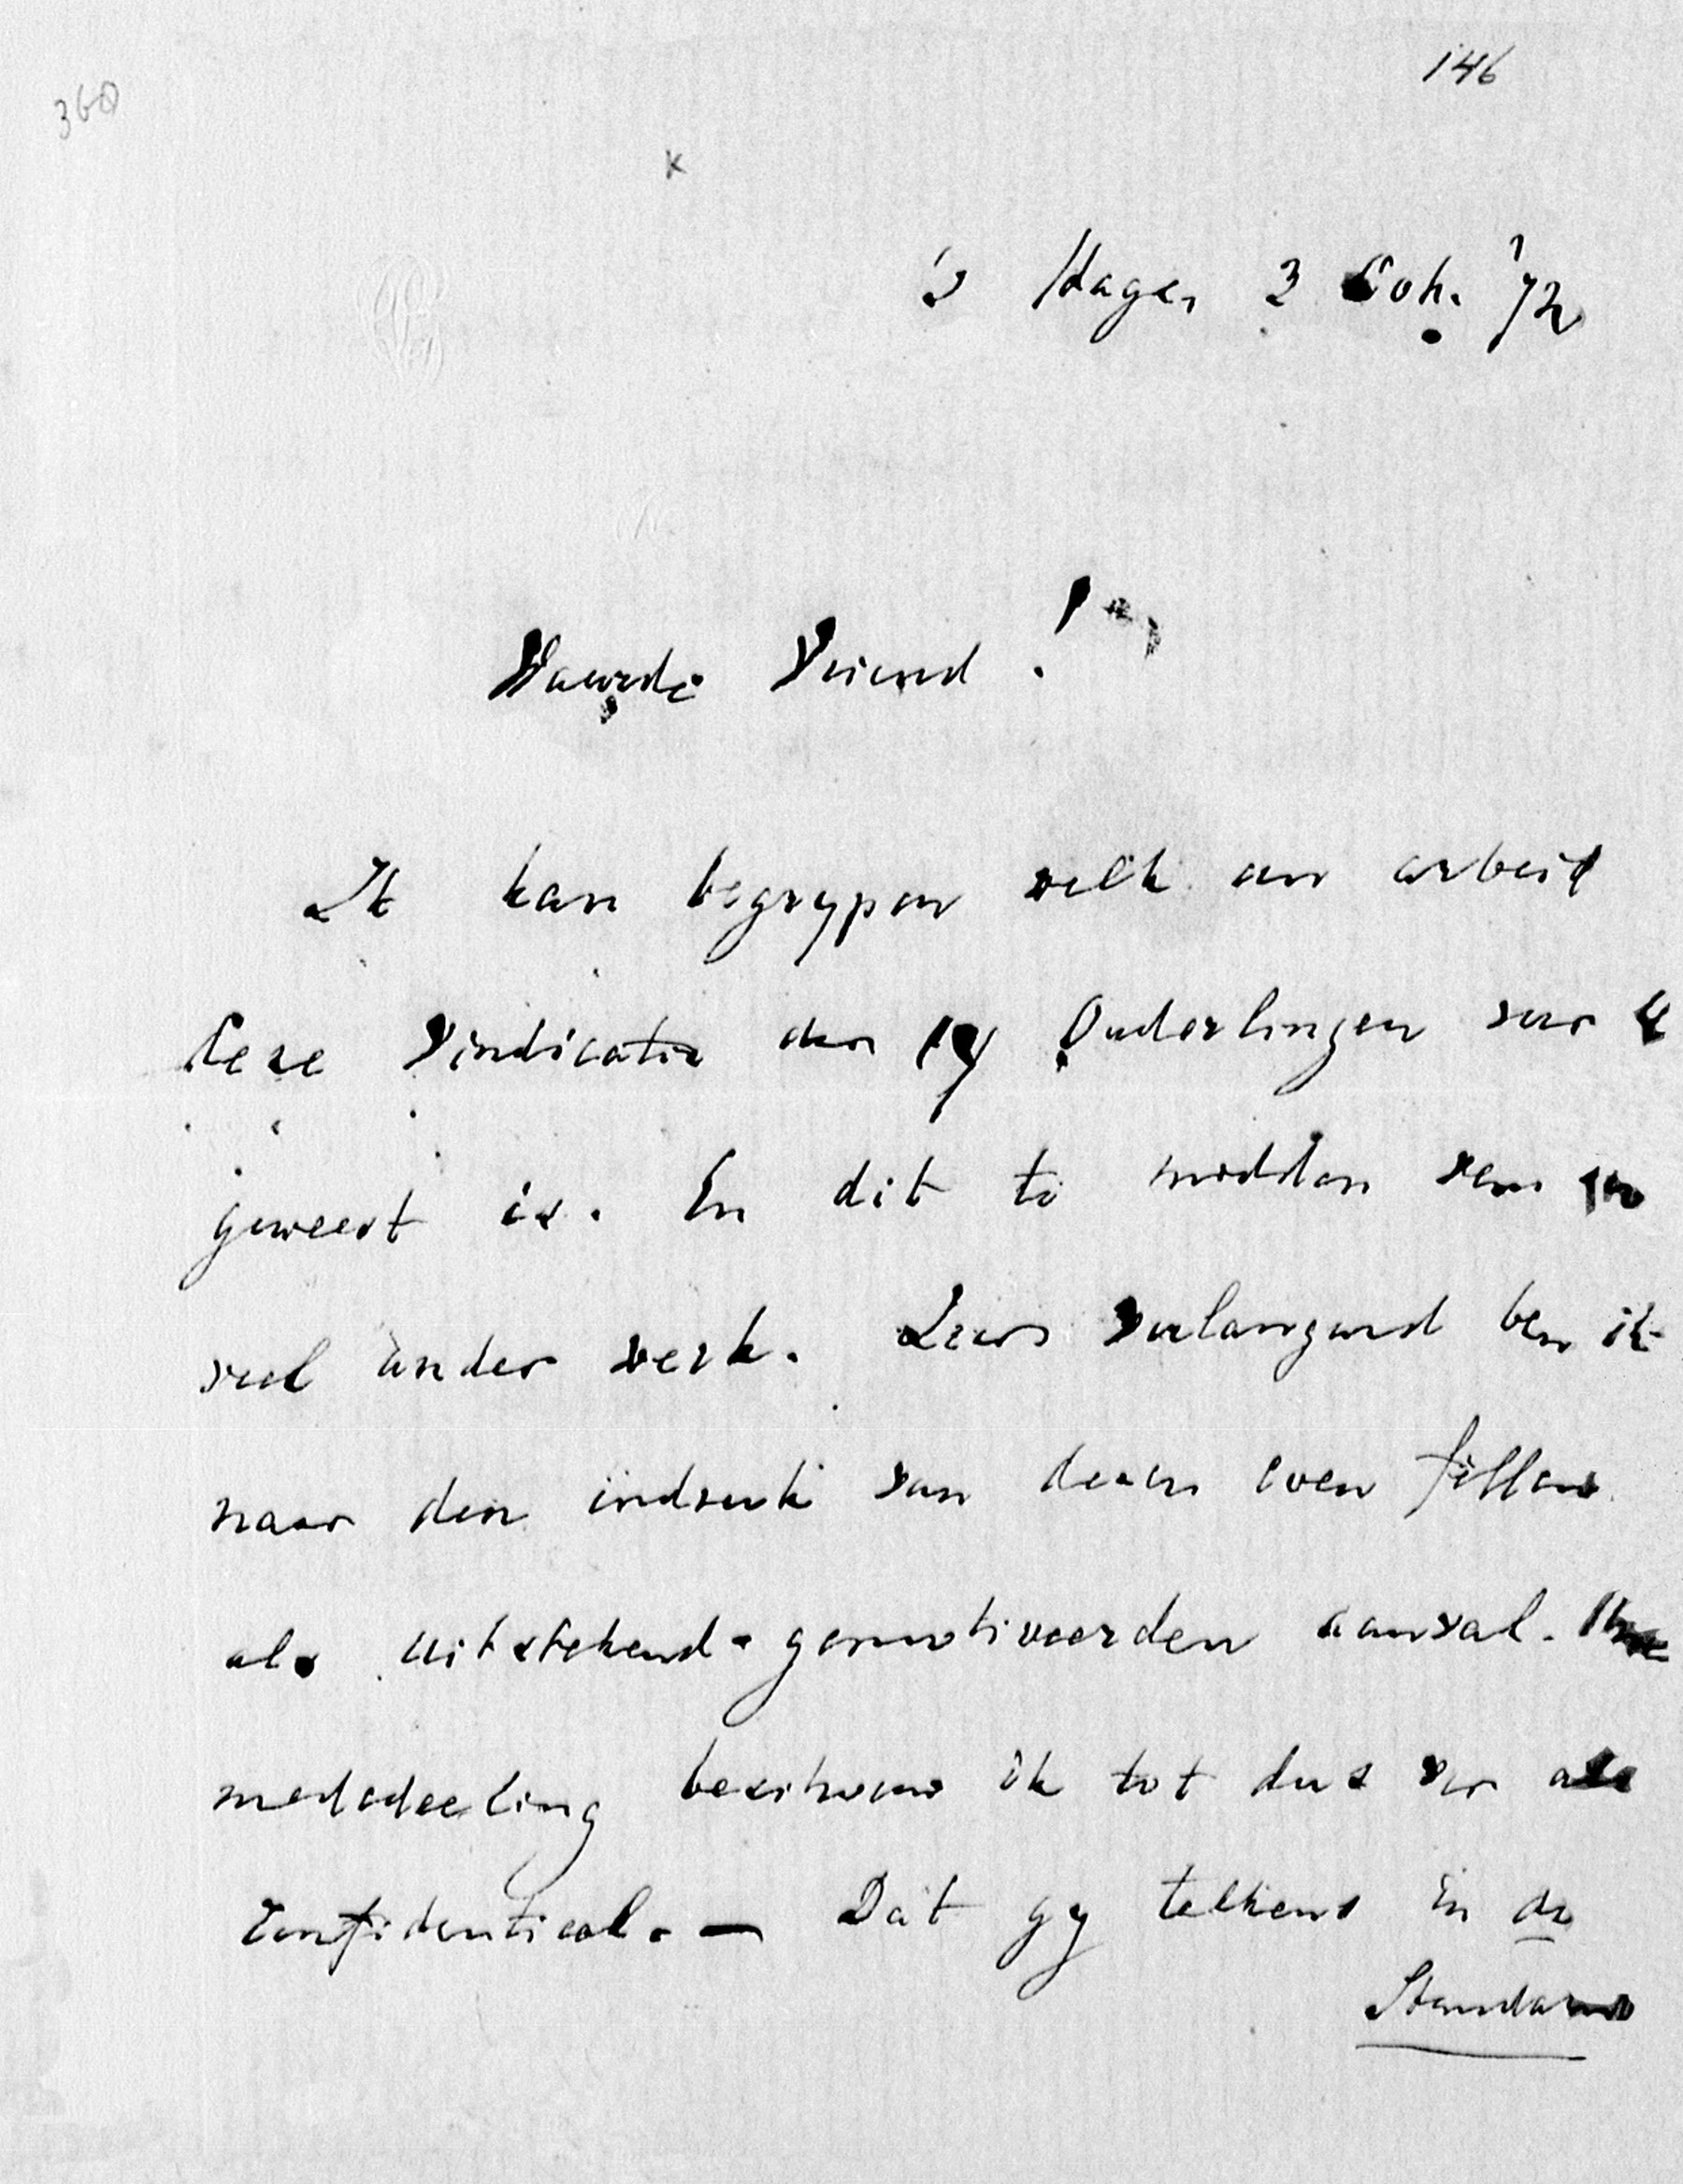 146
360
x
's Hage, 3 Oct. '72
Waarde Vriend!
Ik kan begrypen welk een arbeid
deze Vindicatie der 17 Ouderlingen voor U
geweest is. En dit te midden van zoo
veel ander werk. Zeer verlangend ben ik
naar den indruk van dezen even fellen
als uitstekend-gemotiveerden aanval. Uwe
mededeeling beschouw ik tot dus ver als
confidentieel. — Dat gy telkens in de
Standaard